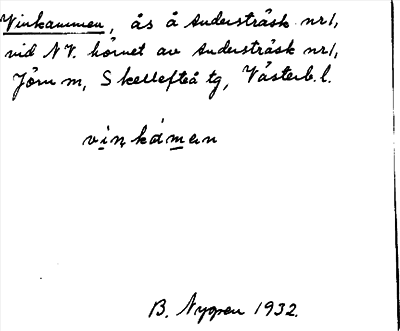 Vinkammen, ås å Andersträsk nr1,
vid NV. hörnet av Andersträsk nr1,
Jörn sn, Skellefteå tg, Västerb. l.
vinkámen
B. Nygren 1932.